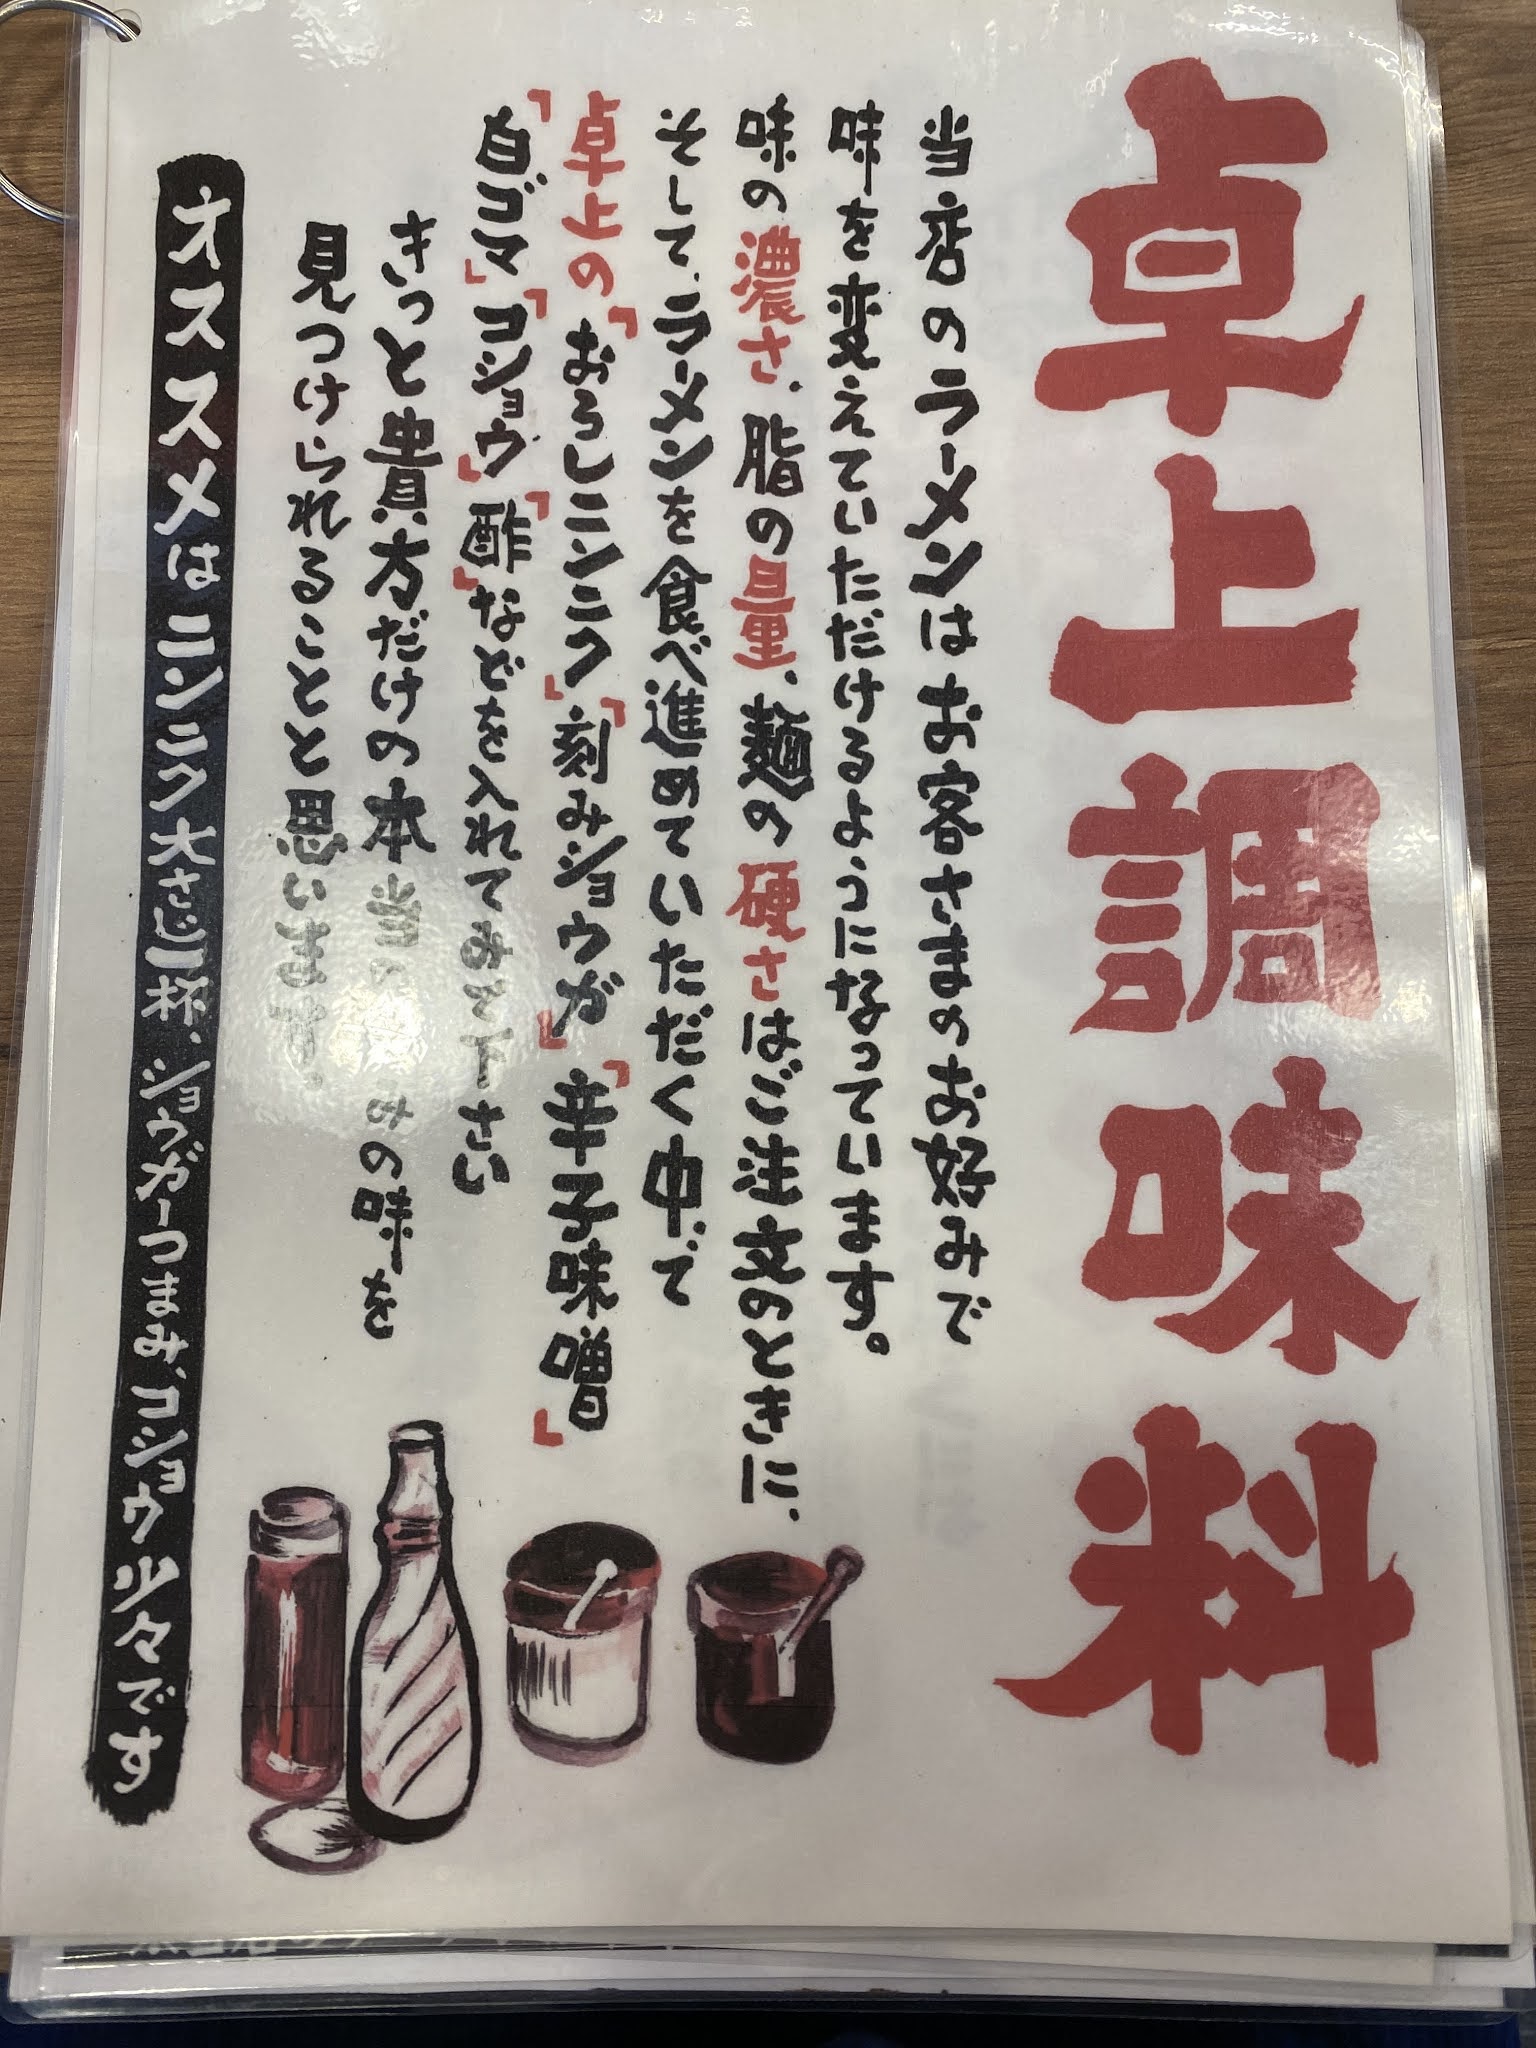 卓上調味料
当店のラーメンはお客さまのお好みで
味を変えていただけるようになっています。
味の濃さ、脂の量、麺の硬さはご注文のときに、
そして、ラーメンを食べ進めていただく中で
卓上の「おろしニンニク」「刻みショウガ」「辛子味噌」
「白ゴマ」「コショウ」「酢」などを入れてみて下さい
きっと貴方だけの本当の好みの味を
見つけられることと思います。
オススメはニンニク大さじ一杯、ショウガ一つまみ、コショウ少々です